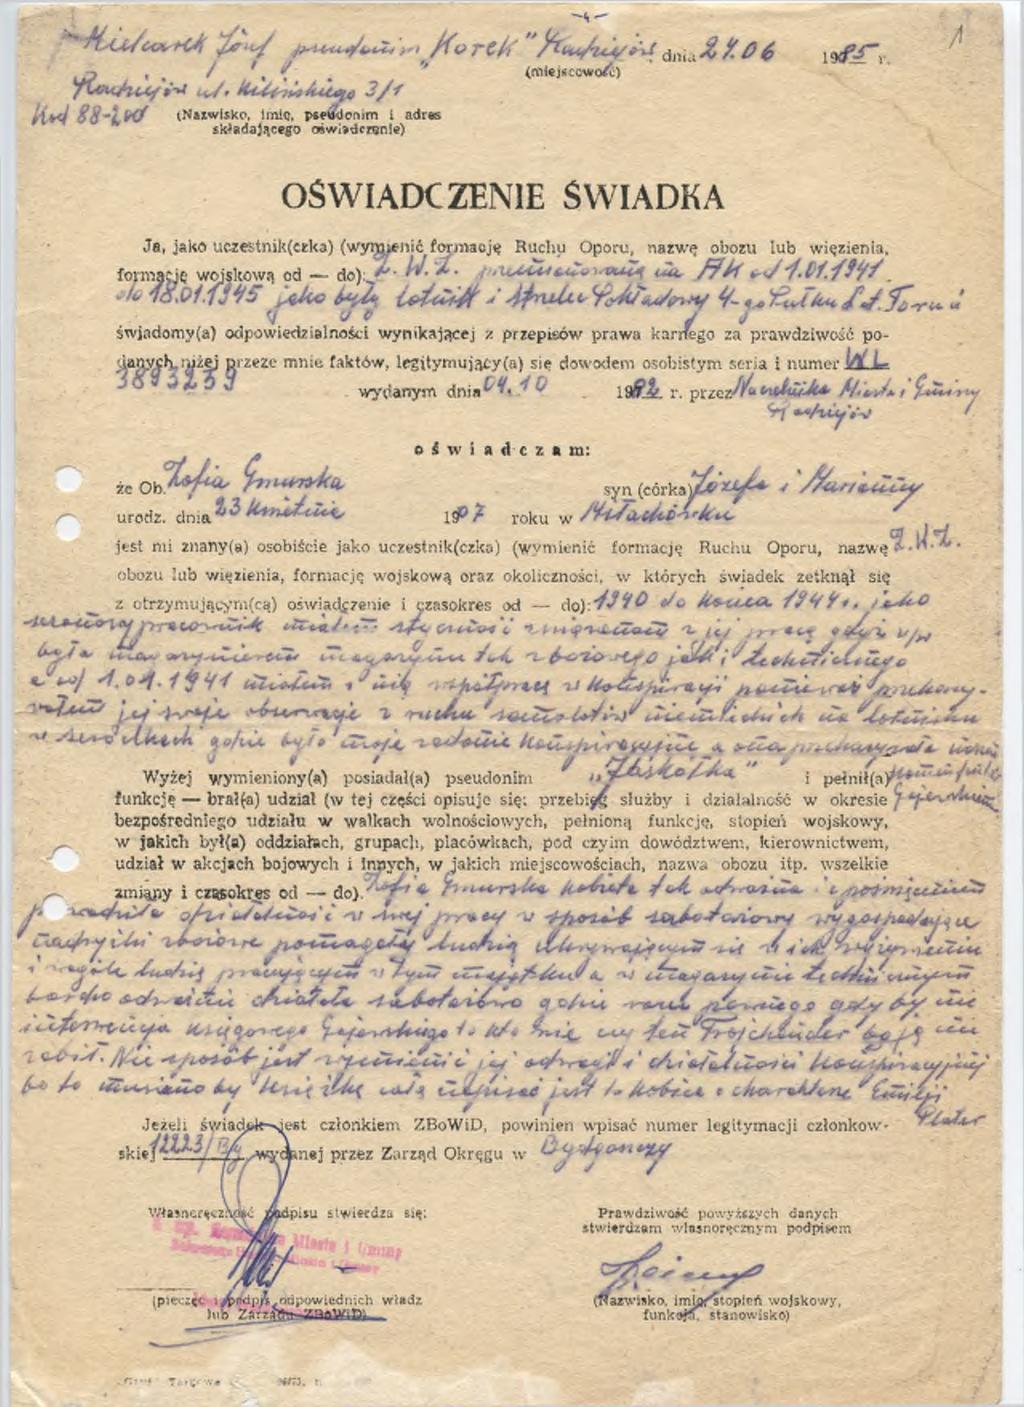 -4-
1
Mielcarek Józef pseudonim "Korek" Radziejów, dnia 24.06 1985 r.
(miejscowość)
Radziejów ul. Kilińskiego 3/1
Kod 88-200 (Nazwisko, imię, pseudonim i adres
składającego oświadczenie)
OŚWIADCZENIE ŚWIADKA
Ja, jako uczestnik(czka) (wymienić formację Ruchu Oporu, nazwę obozu lub więzienia,
formację wojskową od — do): Z.W.Z. przemianowaną na AK od 1.01.1941
do 18.01.1945 jako były lotnik i strzelec 4-go Pułku Lot. Toruń
świadomy(a) odpowiedzialności wynikającej z przepisów prawa karnego za prawdziwość po-
danych niżej przeze mnie faktów, legitymujący(a) się dowodem osobistym seria i numer WL
3893239 wydanym dnia 04.10 1982 r. przez Naczelnika Miasta i Gminy
Radziejów
oświadczam:
że Ob. Zofia Gmurska syn (córka) Józefa i Marianny
urodz. dnia 23 kwietnia 1907 roku w
jest mi znany(a) osobiście jako uczestnik(czka) (wymienić formację Ruchu Oporu, nazwę Z.W.Z.
obozu lub więzienia, formację wojskową oraz okoliczności, w których świadek zetknął się
z otrzymującym(cą) oświadczenie i czasokres od — do): 1940 do końca 1944 r. jako
pracownik miałem styczność z jej pracą gdyż w/w
była magazynierem magazynu tak zbożowego jak i technicznego
a od 1.04.1941 miałem z nią współpracę w konspiracji ponieważ przekazy-
wałem jej swoje obserwacje z ruchu samolotów niemieckich na lotnisku
w gdzie było moje zadanie konspiracyjne a ona przekazywała
Wyżej wymieniony(a) posiadał(a) pseudonim "Jaskółka" i pełnił(a)
funkcję — brał(a) udział (w tej części opisuje się: przebieg służby i działalność w okresie Gajewskiem
bezpośredniego udziału w walkach wolnościowych, pełnioną funkcję, stopień wojskowy,
w jakich był(a) oddziałach, grupach, placówkach, pod czyim dowództwem, kierownictwem,
udział w akcjach bojowych i innych, w jakich miejscowościach, nazwa obozu itp. wszelkie
zmiany i czasokres od — do). Zofia Gmurska kobieta tak odważna i z poświęceniem
prowadziła działalność w swej pracy w sposób sabotażowy wygospodarując
nadwyżki zbożowe pomagała ludzią ukrywającym się w ich wyżywieniu
i wogóle ludzią pracującym w tym majątku a w magazynie technicznym
bardzo odważnie działała sabotażowo gdzie razu pewnego gdyby nie
interwencja księgowego Gajewskiego to kto wie czy ten by ją nie
zabił. Nie sposób jest wymienić jej odwagi i działalności konspiracyjnej
bo to musiano by książkę całą napisać jest to kobieta o charakterze Emilji
Plater
Jeżeli świadek jest członkiem ZBoWiD, powinien wpisać numer legitymacji członkow-
skiej 12223/By wydanej przez Zarząd Okręgu w Bydgoszczy
Własnoręczność podpisu stwierdza się: Prawdziwość powyższych danych
stwierdzam własnoręcznym podpisem
Miasta i Gminy
(pieczęć i podpis odpowiednich władz (Nazwisko, imię, stopień wojskowy,
lub Zarządu ZBoWiD) funkcja, stanowisko)